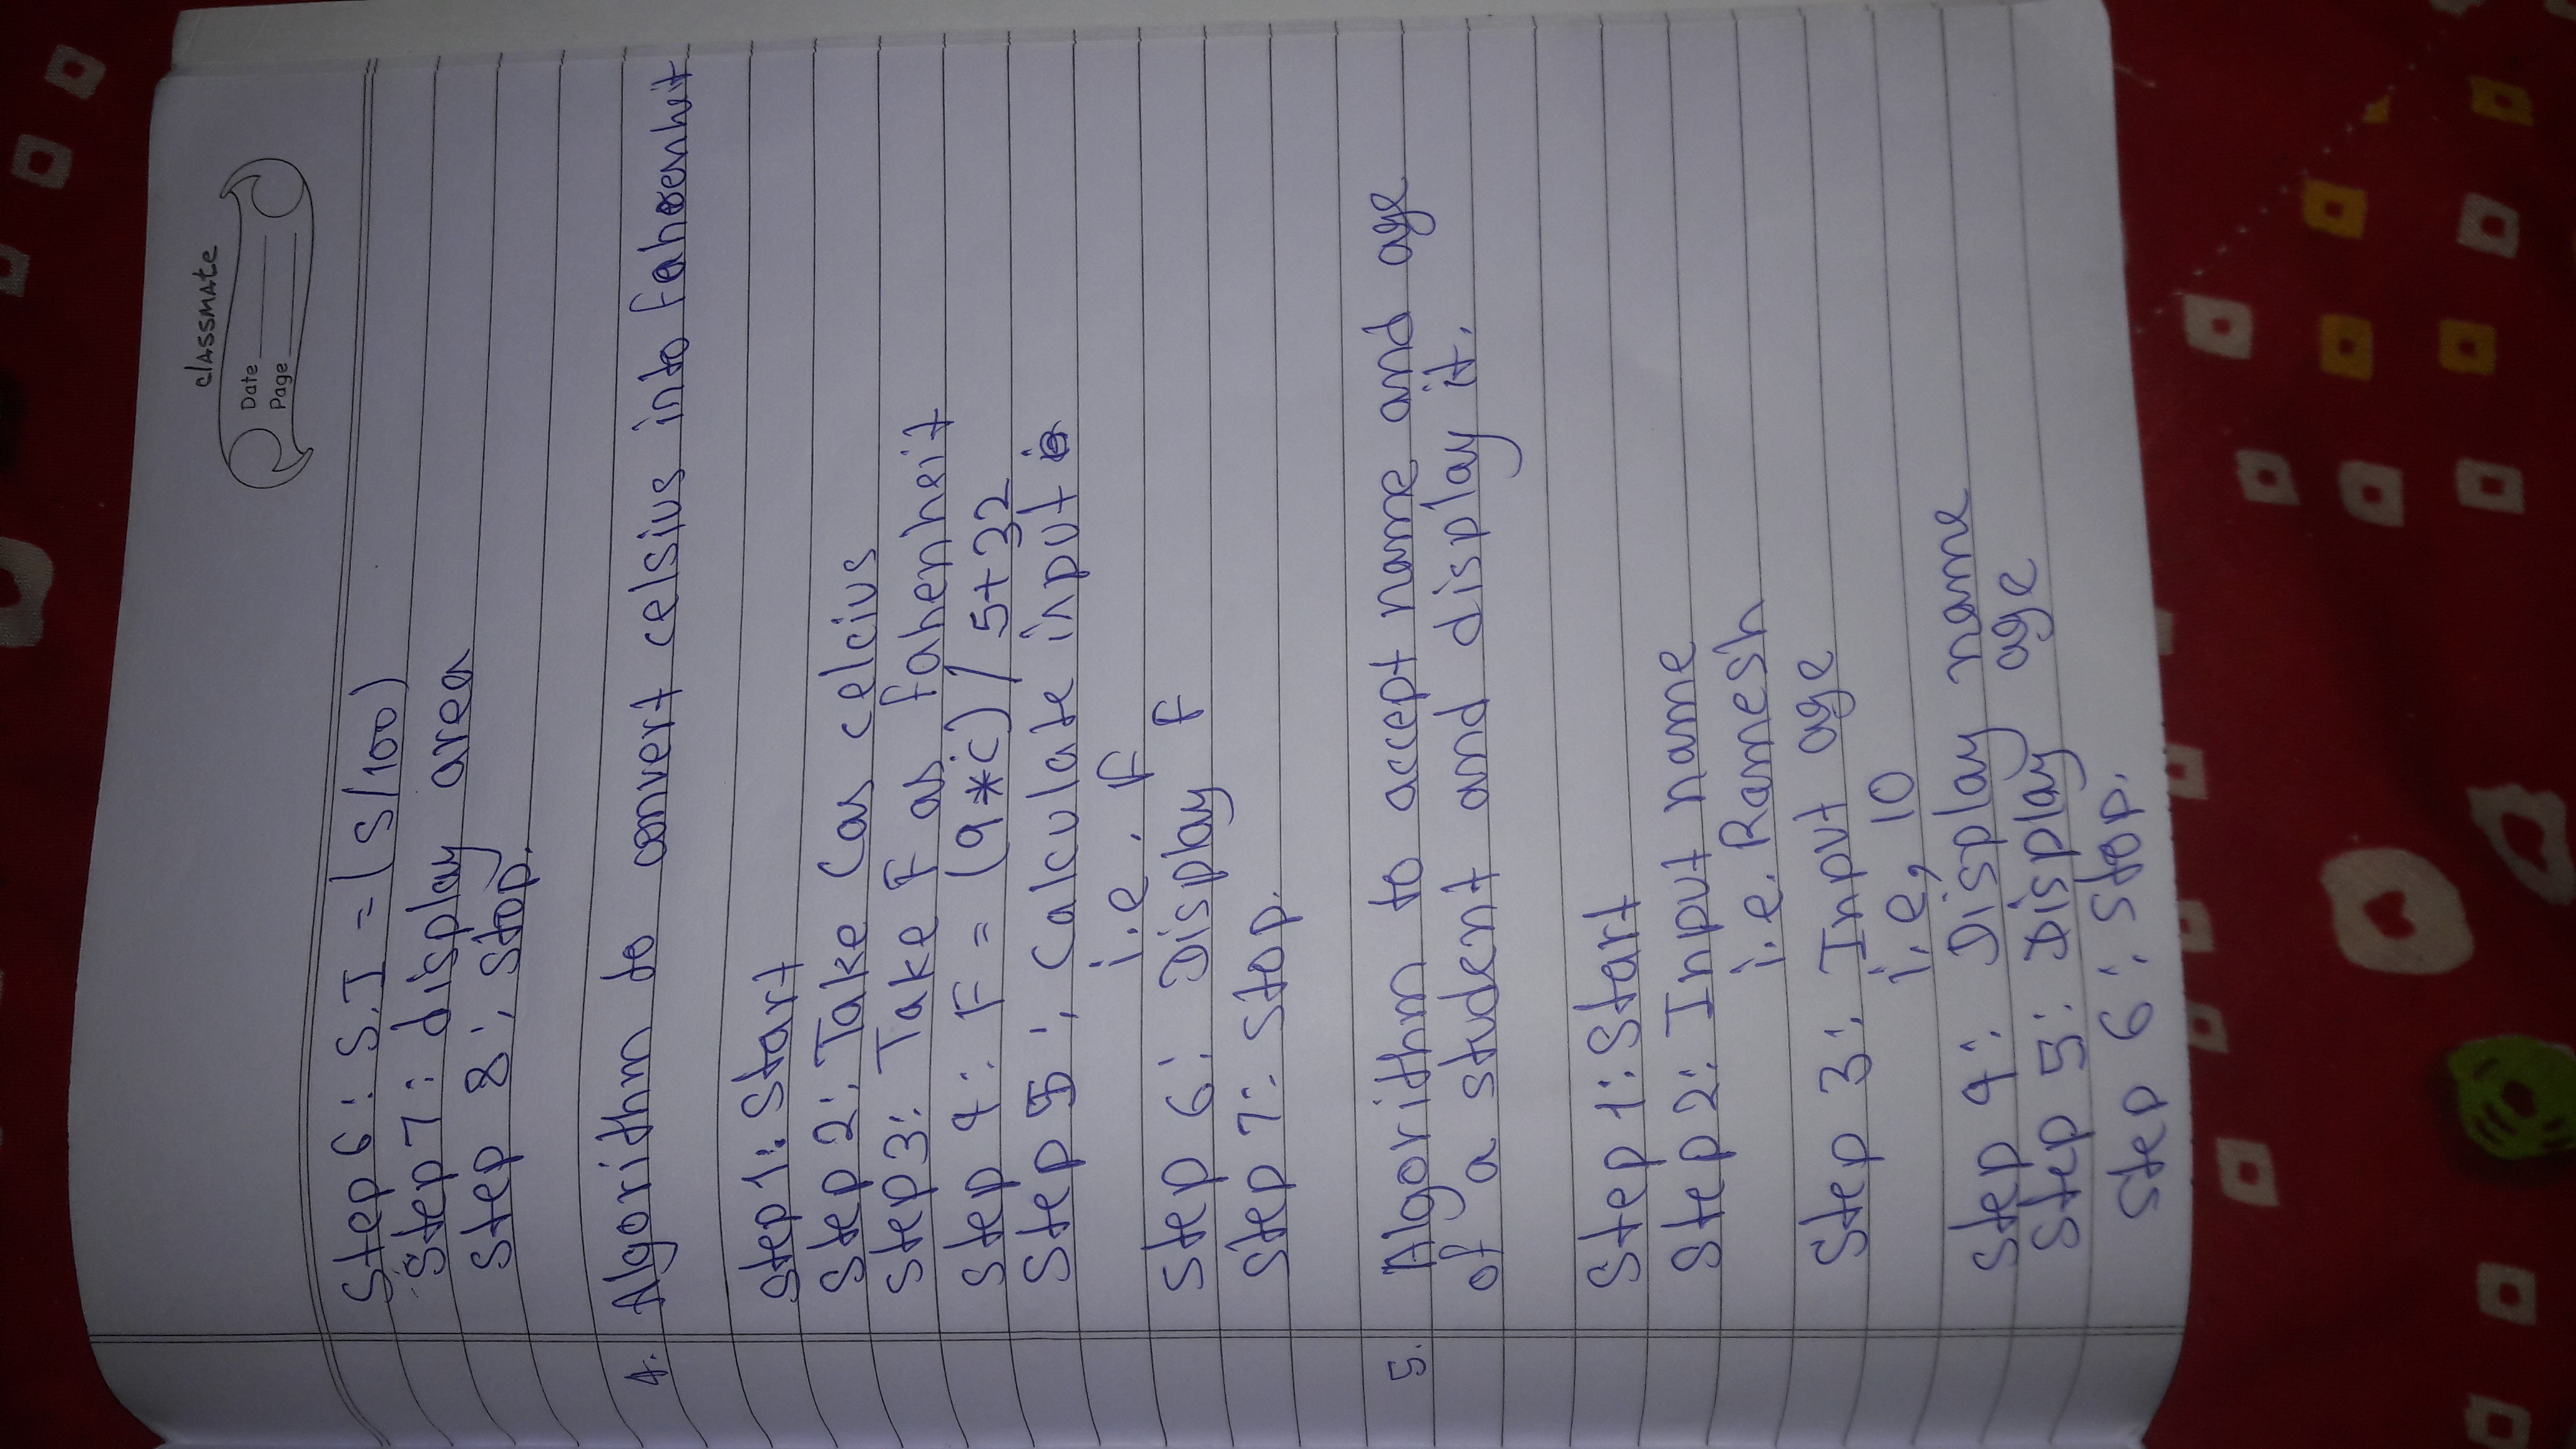 classmate
Date
Page
Step 6: S.I = (S/100)
Step 7: display area
Step 8: Stop.
4. Algorithm to convert celsius into Fahrenheit
Step 1: Start
Step 2: Take C as celcius
Step 3: Take F as fahenheit
Step 4: F = (9*C) / 5+32
Step 5: Calculate input
i.e. F
Step 6: Display F
Step 7: Stop.
5. Algorithm to accept name and age
of a student and display it.
Step 1: Start
Step 2: Input name
i.e. Ramesh
Step 3: Input age
i.e, 10
Step 4: Display name
Step 5: Display age
Step 6: Stop.